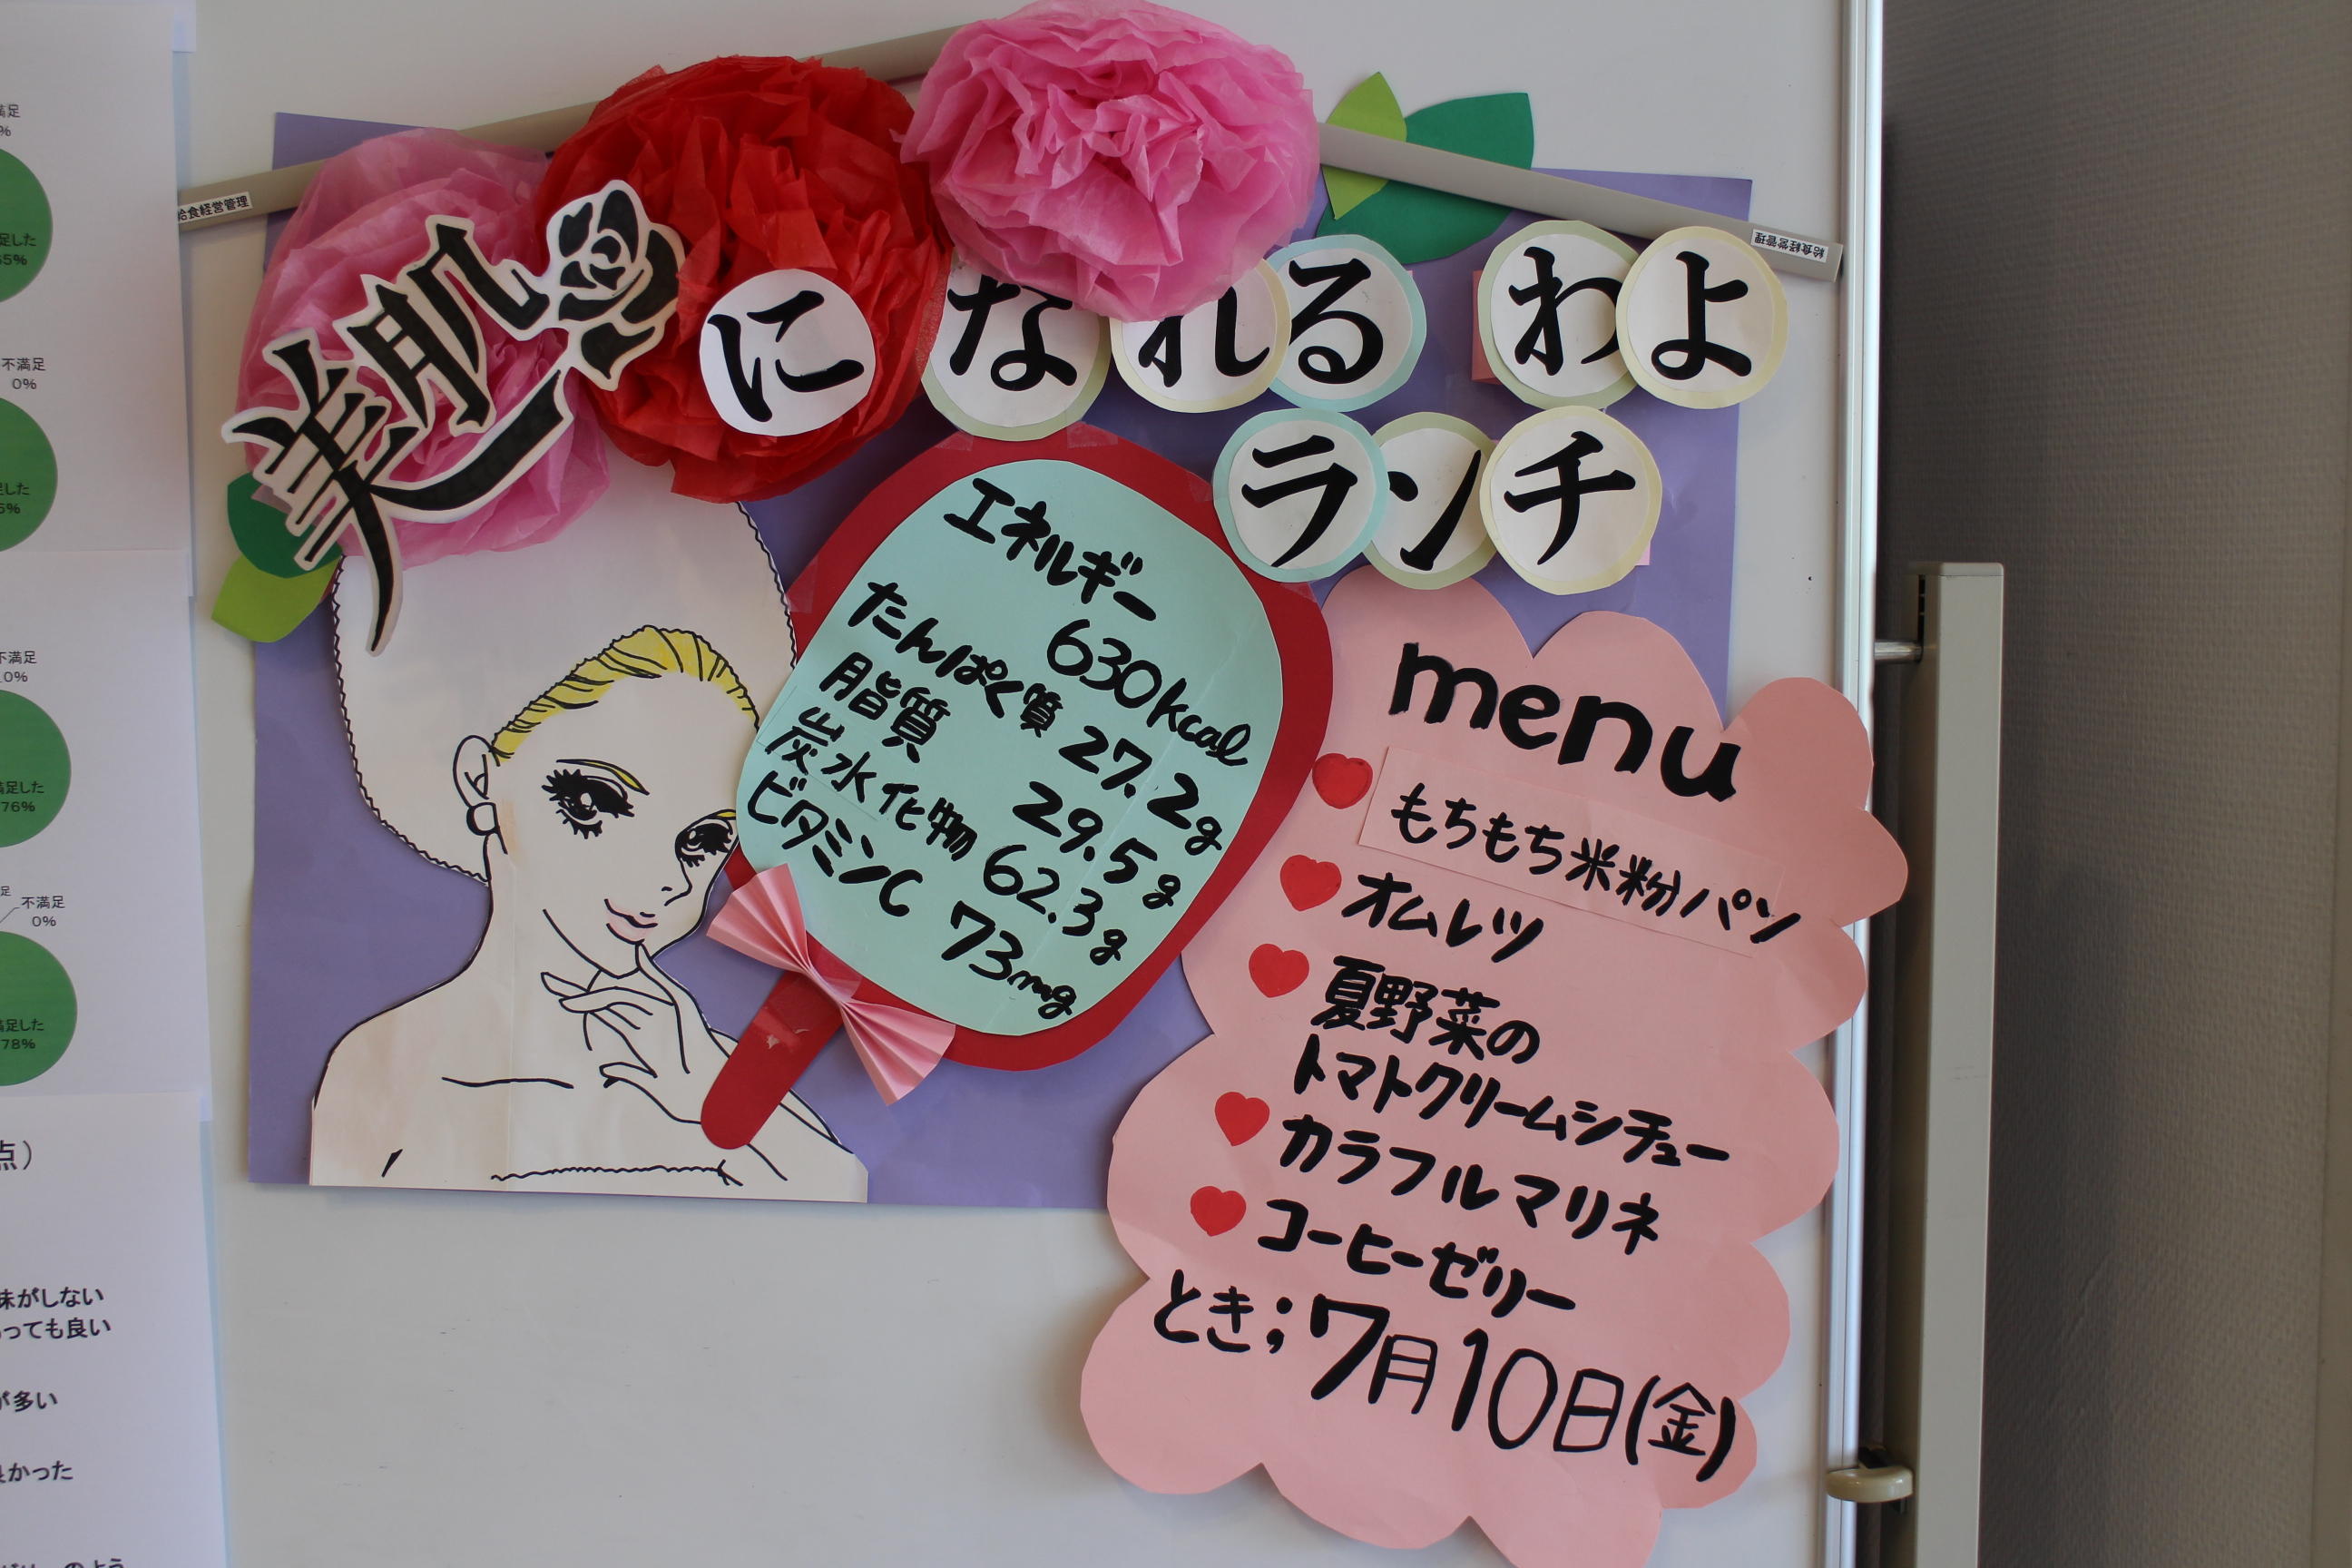 満足
%
足した
65%
不満足
0%
足した
5%
不満足
0%
満足した
76%
足
不満足
0%
満足した
78%
点）
味がしない
っても良い
が多い
良かった
のよう
給食経営管理
給食経営管理
美肌
に なれる わよ
ランチ
エネルギー
630kcal
たんぱく質 27.2g
脂質 29.5g
炭水化物 62.3g
ビタミンC 73mg
menu
もちもち米粉パン
オムレツ
夏野菜の
トマトクリームシチュー
カラフルマリネ
コーヒーゼリー
とき；7月10日(金)